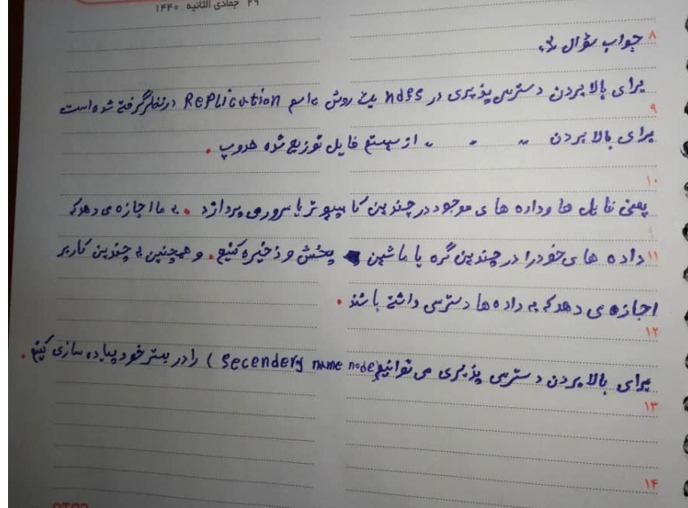 ۲۹ جمادی الثانیه ۱۴۴۰
۸ جواب سؤال ۳:
برای بالا بردن دسترسی پذیری در hdfs یک روش به اسم Replication در نظر گرفته شده است
۹
برای بالا بردن " " " از سیستم فایل توزیع شده هدوپ .
۱۰
یعنی فایل ها و داده های موجود در چندین کامپیوتر یا سرور می پردازد . به ما اجازه می دهد که
۱۱ داده های خود را در چندین گره یا ماشین پخش و ذخیره کنیم . و همچنین به چندین کاربر
اجازه می دهد که به داده ها دسترسی داشته باشند .
۱۲
برای بالا بردن دسترسی پذیری می توانیم (Secendery name node) را در بستر خود پیاده سازی کنیم .
۱۳
۱۴